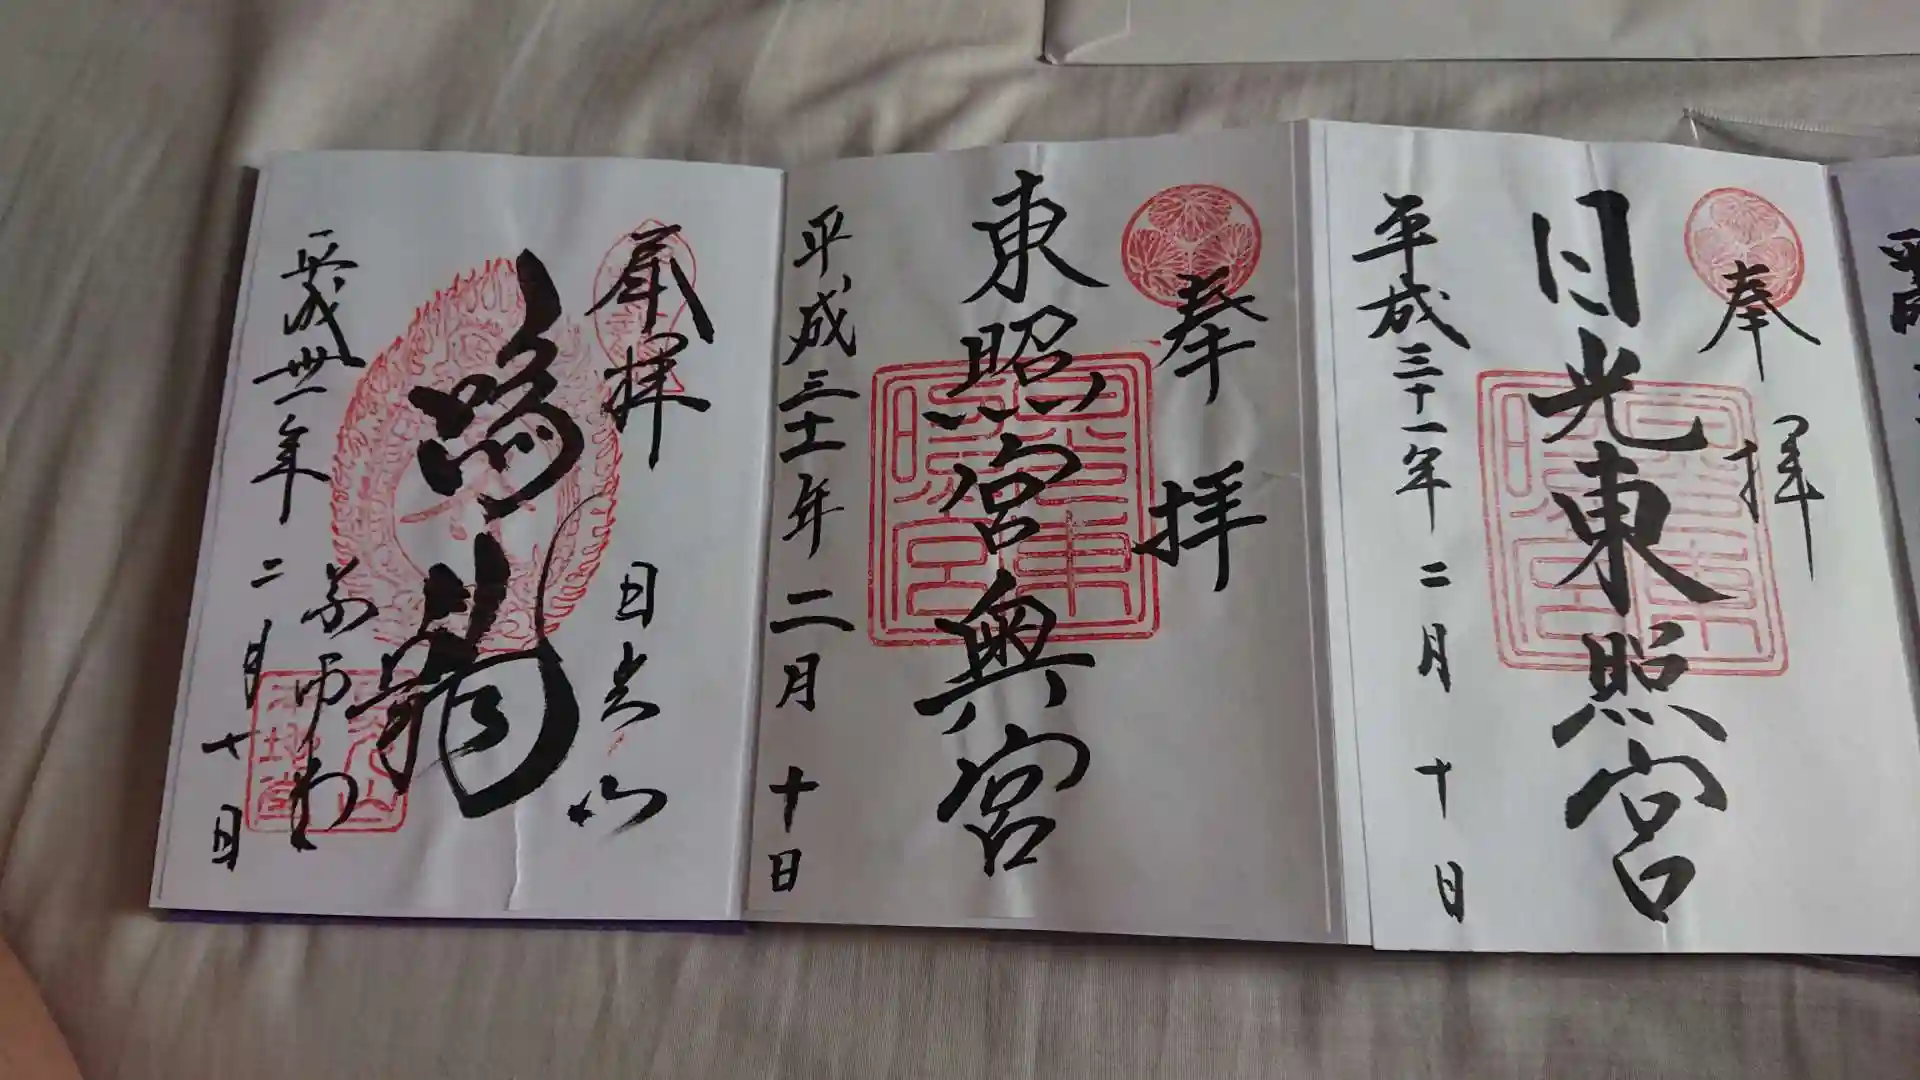 奉拝
日光東照宮
平成三十一年二月十日
奉拝
東照宮奥宮
平成三十一年二月十日
奉拝 日光山
鳴龍
薬師堂
平成卅一年二月十日